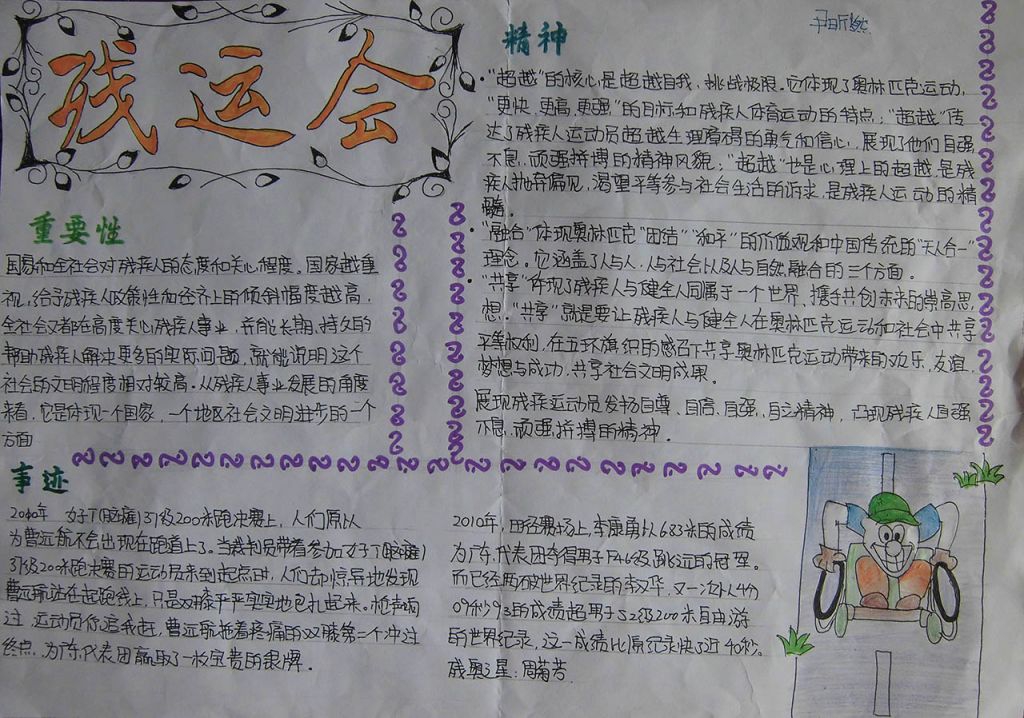 残运会
重要性
国家和全社会对残疾人的态度和关心程度。国家越重
视,给予残疾人政策性和经济上的倾斜幅度越高,
全社会又都在高度关心残疾人事业,并能长期、持久的
帮助残疾人解决更多的实际问题,就能说明这个
社会的文明程度相对较高。从残疾人事业发展的角度
来看,它是体现一个国家,一个地区社会文明进步的一个
方面
精神
"超越"的核心是超越自我、挑战极限。它体现了奥林匹克运动,
"更快、更高、更强"的目标和残疾人体育运动的特点;"超越"传
达了残疾人运动员超越生理障碍的勇气和信心,展现了他们自强
不息、顽强拼搏的精神风貌;"超越"也是心理上的超越,是残
疾人抛弃偏见,渴望平等参与社会生活的诉求,是残疾人运动的精
髓。
"融合"体现奥林匹克"团结""和平"的价值观和中国传统的"天人合一"
理念。它涵盖了人与人、人与社会以及人与自然融合的三个方面。
"共享"体现了残疾人与健全人同属于一个世界,携手共创未来的崇高思
想。"共享"就是要让残疾人与健全人在奥林匹克运动和社会中共享
平等权利,在五环旗帜的感召下共享奥林匹克运动带来的欢乐、友谊、
梦想与成功,共享社会文明成果。
展现残疾运动员发扬自尊、自信、自强、自立精神,凸现残疾人自强
不息、顽强拼搏的精神。
事迹
为曹远航不会出现在跑道上了。当裁判员带着参加女子T(脑瘫)
37级200米跑决赛的运动员来到起点时,人们却惊异地发现
曹远航站在起跑线上,只是双膝严严实实地包扎起来。枪声响
过,运动员你追我赶,曹远航拖着疼痛的双膝第二个冲过
终点,为广东代表团赢取了一枚宝贵的银牌。
2010年,田径赛场上,李康勇以6.83米的成绩
为广东代表团夺得男子F46级跳远的冠军。
而已经两破世界纪录的李汉华,又一次以4分
09秒93的成绩超男子S2级200米自由游
的世界纪录,这一成绩比原纪录快了近40秒。
残奥之星:周菊芳